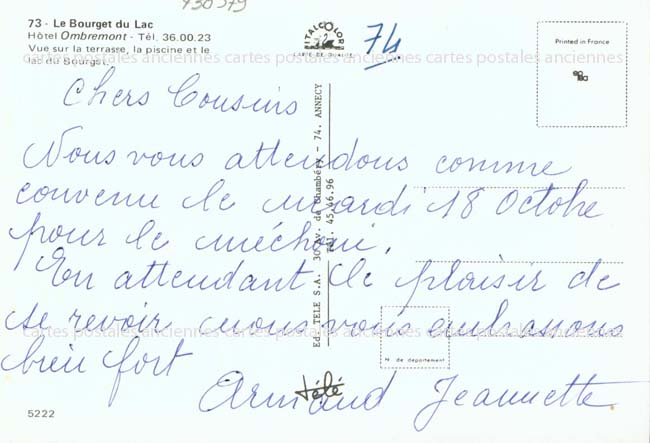 730 579
73 - Le Bourget du Lac
Hôtel Ombremont - Tél. 36.00.23
Vue sur la terrasse, la piscine et le
lac du Bourget.
ITALCOLOR
CARTE DE QUALITE
74
Printed in France
cartes postales anciennes cartes postales anciennes cartes postales anciennes
Chers Cousins
Nous vous attendons comme
convenu le mardi 18 Octobre
pour le méchoui.
En attendant le plaisir de
se revoir nous vous embrassons
bien fort
Armand Jeannette
Ed. TELE S.A. 30 Av. de Chambéry - 74. ANNECY
Tél. 45.46.96
télé
N° de département
cartes postales anciennes cartes postales anciennes cartes postales anciennes
5222